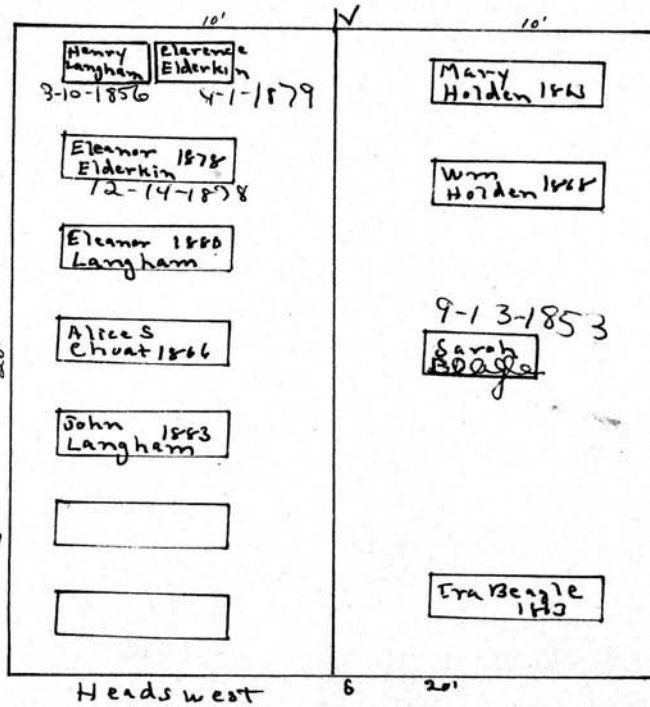 10'
10'
Henry
Langham
Clarence
Elderkin
3-10-1856
4-1-1879
Eleanor 1878
Elderkin
12-14-1878
Eleanor 1880
Langham
Alice S
1866
John 1883
Langham
Mary
Holden 1863
Wm
Holden 1868
9-13-1853
Sarah
Beagle
Ira Beagle
20'
Heads west
6
20'